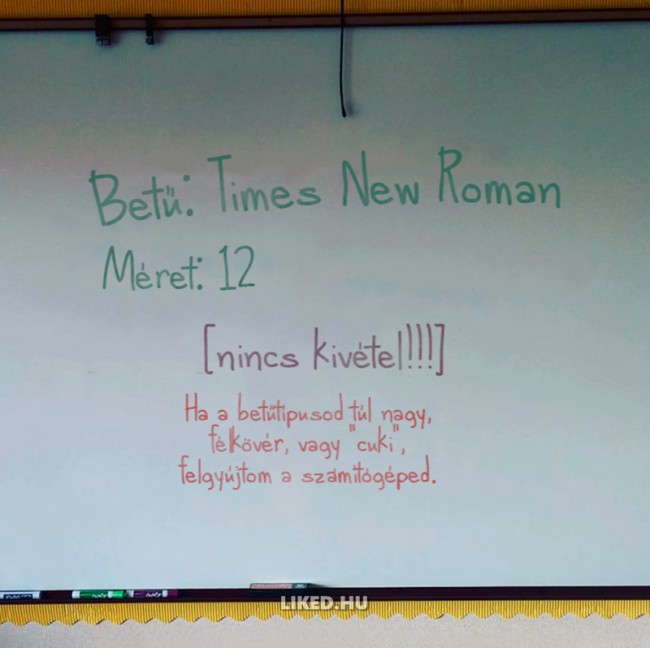 Betű: Times New Roman
Méret: 12
[nincs kivétel!!!]
Ha a betűtípusod túl nagy,
félkövér, vagy "cuki",
felgyújtom a számítógéped.
LIKED.HU